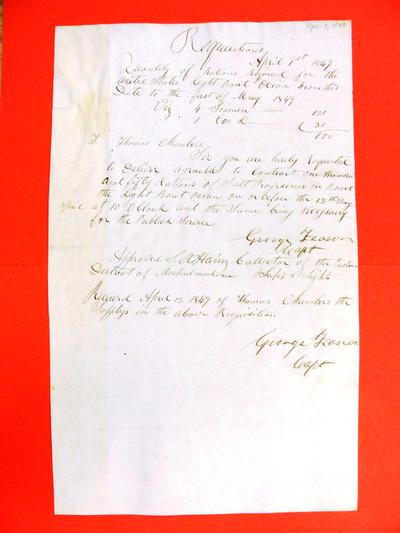 Apr. 1, 1849
Requisitions
April 1st 1849
Quantity of Rations Required for the
United States Light Boat Ocean from this
Date to the first of May 1849
Viz 4 Seamen 120
1 Cook 30
150
Thomas Chambers
Sir you are hereby Requested
to Deliver Agreable to Contract one Hundred
and fifty Rations of Salt Provisions on Board
the Light Boat Ocean on or before the 12th Day
April at 10 O Clock and the Same being Necessary
for the Publick Service
George
Capt
Approved Collector of the Eastern
District of Supt Light
Received April 12 1849 of Thomas Chambers the
Supplys in the above Requisition
George
Capt